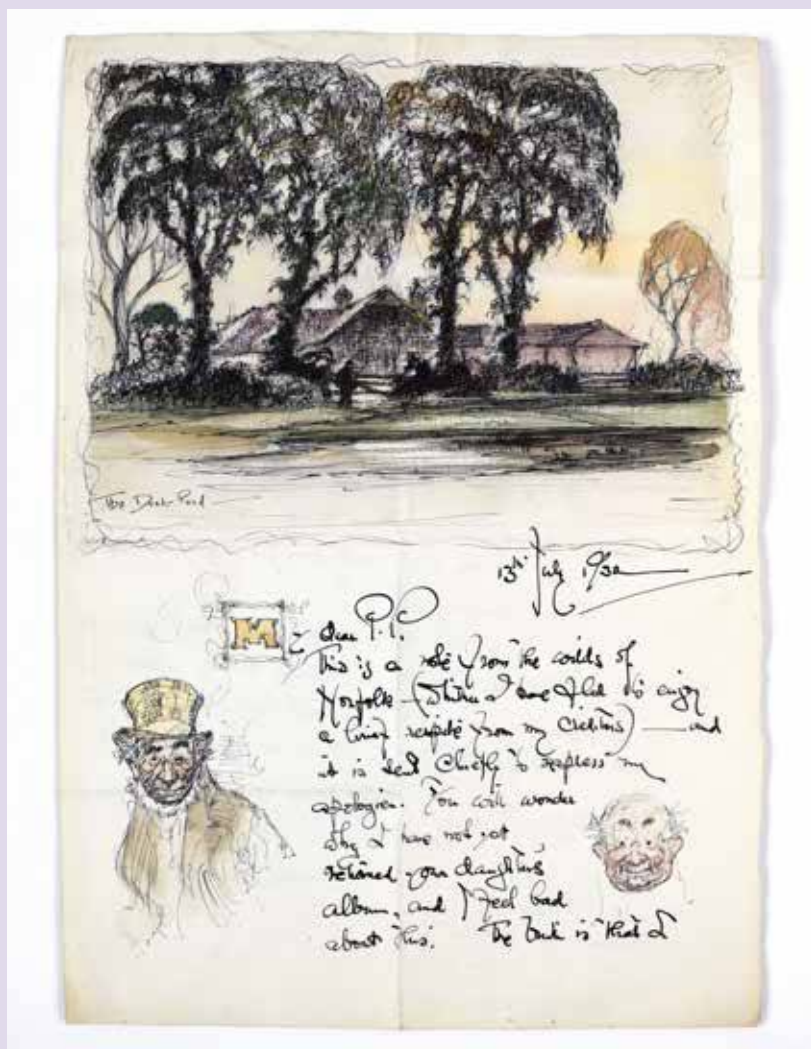 The Duck Pond
13th July 1932
M
Dear P.P.
This is a note from the wilds of
Norfolk (whither I have fled to enjoy
a brief respite from my Creditors) — and
it is sent chiefly to express my
apologies. You will wonder
why I have not yet
returned your daughter's
album, and I feel bad
about this. The truth is that I